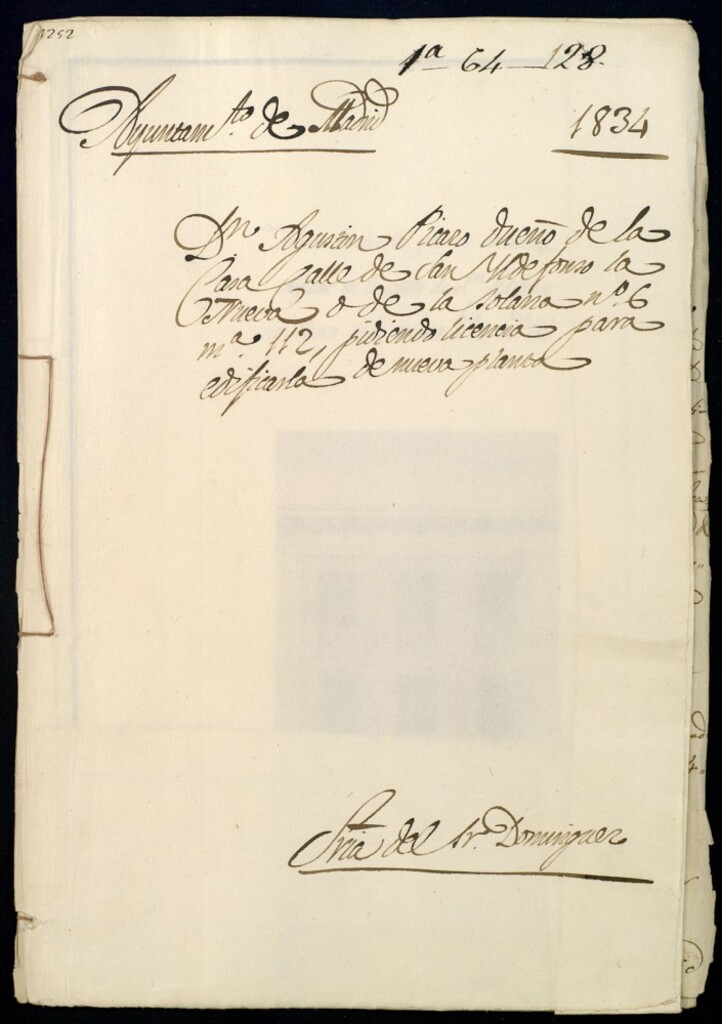 1252
1ª 64 128
Ayuntamto de Madrid
1834
Dn Agustin Picaro dueño de la
Casa Calle de San Yldefonso la
Nueva o de la Solana nº 6
mª 112, pidiendo licencia para
edificarla de nueva planta
Sria del Sr Dominguez